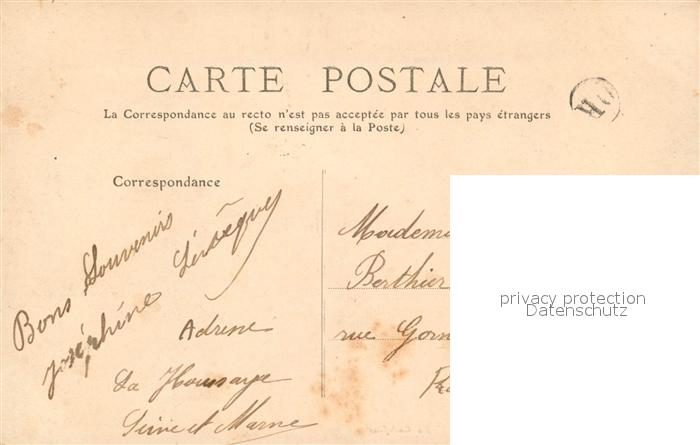 CARTE POSTALE
La Correspondance au recto n'est pas acceptée par tous les pays étrangers
(Se renseigner à la Poste)
Correspondance
Bons Souvenirs
Joséphine Lévêque
Adresse
La Houssaye
Seine et Marne
Madem
Berthier
rue Gorn
privacy protection
Datenschutz